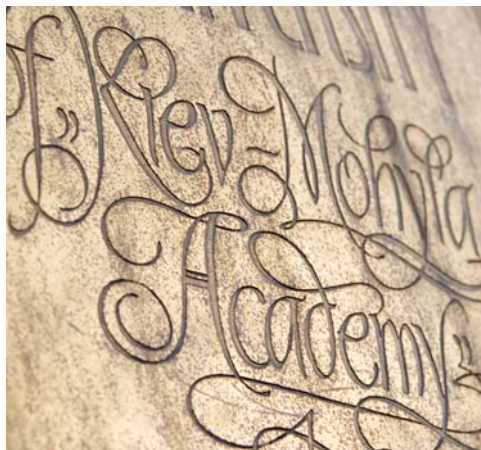 of "Kiev-Mohyla
Academy"